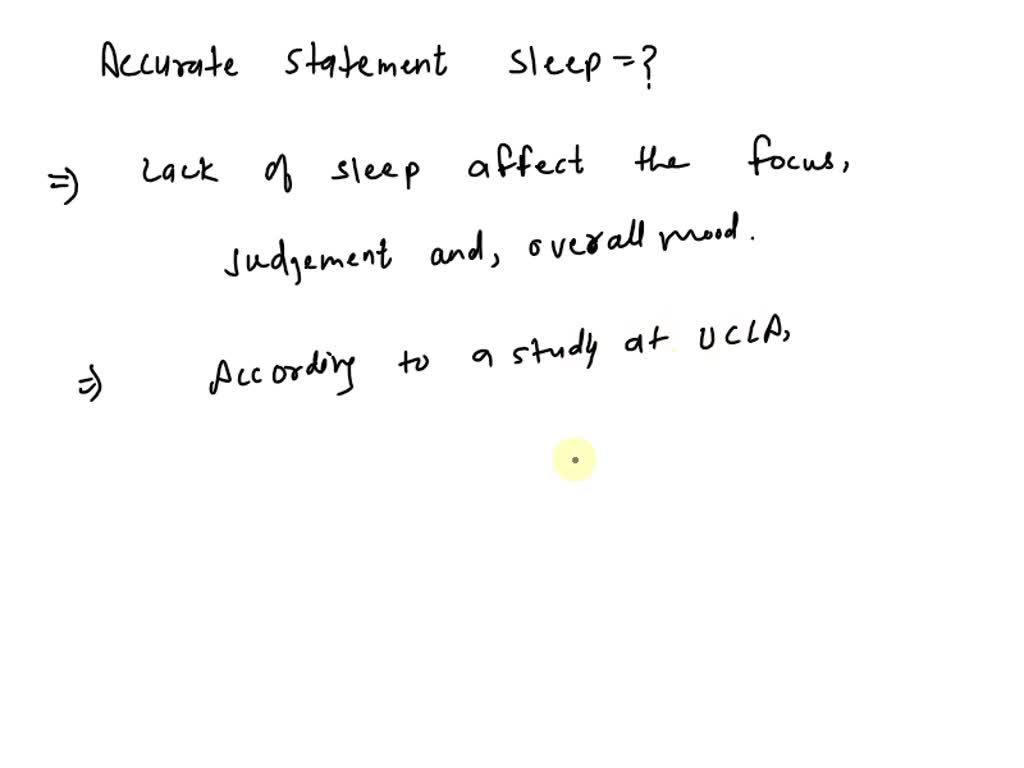 Accurate statement sleep=?
⇒ Lack of sleep affect the focus,
Judgement and, overall mood.
⇒ According to a study at UCLA,